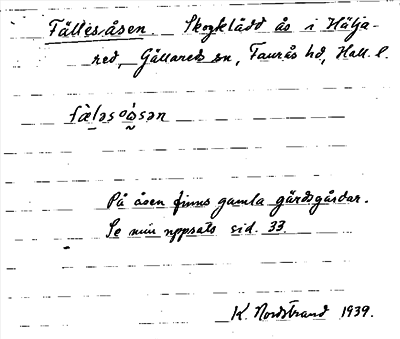 Fällesåsen. Skogklädd ås i Hälja-
red, Gällareds sn, Faurås hd, Hall. l.
På åsen finns gamla gärdsgårdar.
Se min uppsats sid. 33.
K. Nordstrand 1939.